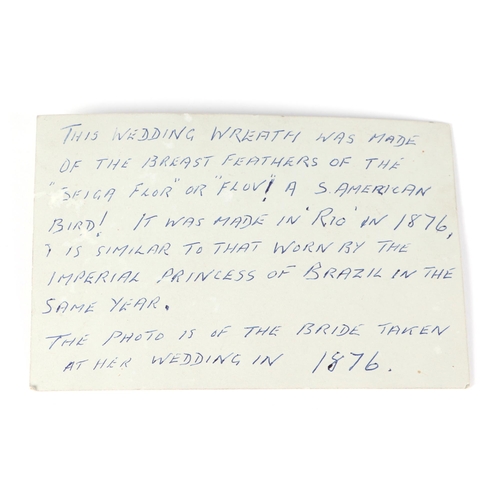 THIS WEDDING WREATH WAS MADE
OF THE BREAST FEATHERS OF THE
"SEIGA FLOR" OR "FLOV"! A S. AMERICAN
BIRD! IT WAS MADE IN 'RIO' IN 1876,
& IS SIMILAR TO THAT WORN BY THE
IMPERIAL PRINCESS OF BRAZIL IN THE
SAME YEAR.
THE PHOTO IS OF THE BRIDE TAKEN
AT HER WEDDING IN 1876.